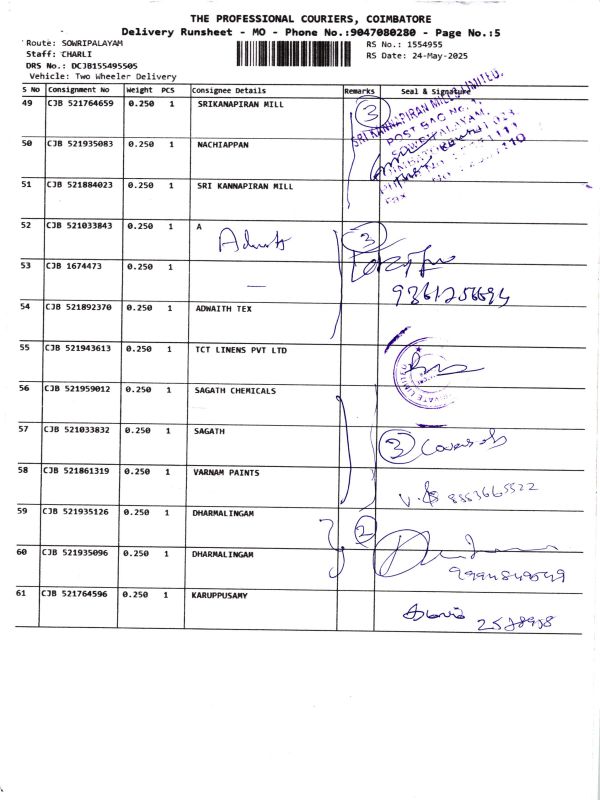 THE PROFESSIONAL COURIERS, COIMBATORE
Delivery Runsheet - MO - Phone No.:9047080280 - Page No.:5
Route: SOWRIPALAYAM
RS No.: 1554955
Staff: CHARLI
RS Date: 24-May-2025
DRS No.: DCJB155495505
Vehicle: Two Wheeler Delivery
S No Consignment No Weight PCS Consignee Details Remarks Seal & Signature
49 CJB 521764659 0.250 1 SRIKANAPIRAN MILL 3
SRI KANNAPIRAN MILLS LIMITED.
POST BAG No. 1,
SOWRIPALAYAM,
50 CJB 521935083 0.250 1 NACHIAPPAN
Fax
51 CJB 521884023 0.250 1 SRI KANNAPIRAN MILL
52 CJB 521033843 0.250 1 A 3
53 CJB 1674473 0.250 1
9361256694
54 CJB 521892370 0.250 1 ADWAITH TEX
55 CJB 521943613 0.250 1 TCT LINENS PVT LTD
PRIVATE LIMITED
56 CJB 521959012 0.250 1 SAGATH CHEMICALS
57 CJB 521033832 0.250 1 SAGATH 3
58 CJB 521861319 0.250 1 VARNAM PAINTS
59 CJB 521935126 0.250 1 DHARMALINGAM 2
60 CJB 521935096 0.250 1 DHARMALINGAM
61 CJB 521764596 0.250 1 KARUPPUSAMY